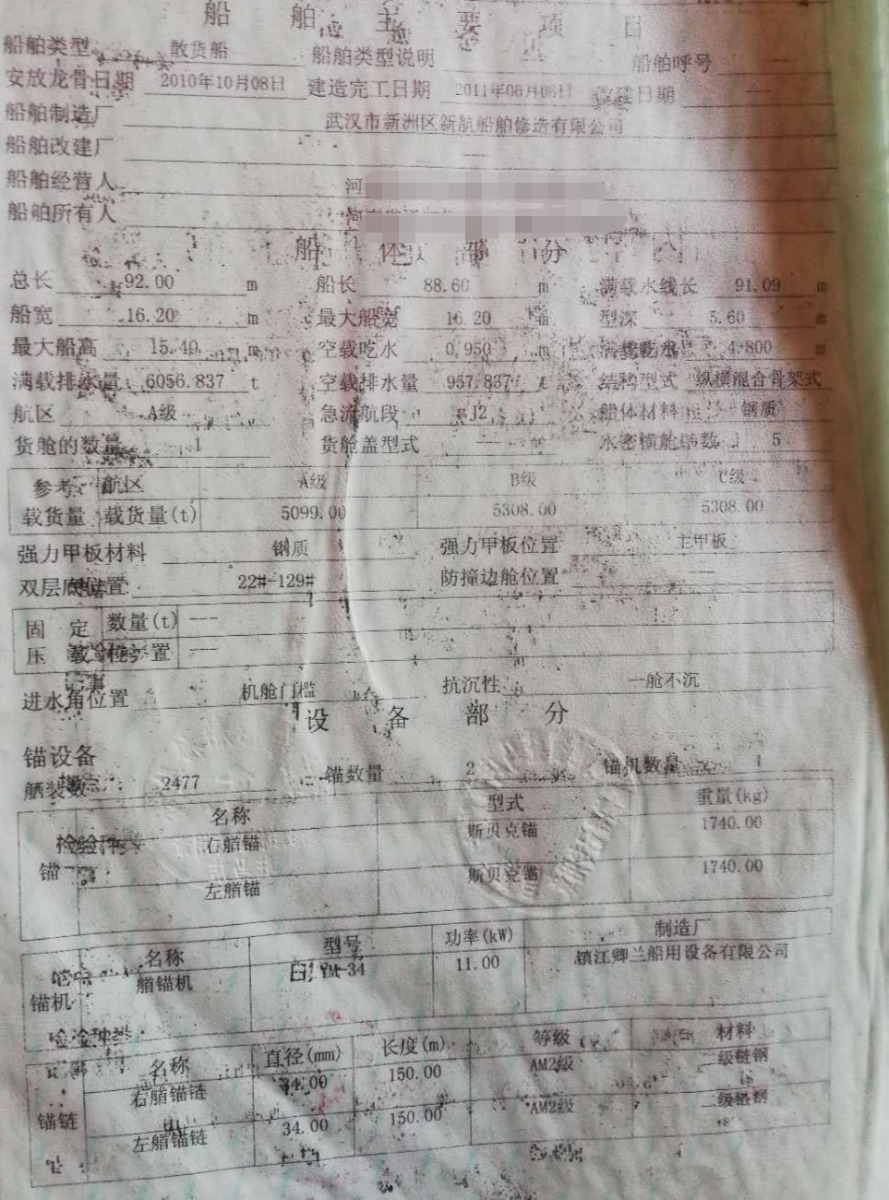 船舶主要项目
船舶类型 散货船 船舶类型说明 船舶呼号
安放龙骨日期 2010年10月08日 建造完工日期 2011年06月08日 日期
船舶制造厂 武汉市新洲区新航船舶修造有限公司
船舶改建厂 —
船舶经营人 河
船舶所有人
船体部分
总长 92.00 m 船长 88.60 m 满载水线长 91.09 m
船宽 16.20 m 最大船宽 16.20 m 型深 5.60 m
最大船高 15.40 m 空载吃水 0.950 m 满载吃水 4.800
满载排水量 6056.837 t 空载排水量 957.837 t 结构型式 纵横混合骨架式
航区 A级 急流航段 J2 船体材料 钢质
货舱的数量 1 货舱盖型式 — 水密横舱壁数 5
参考 航区 A级 B级 C级
载货量 载货量(t) 5099.00 5308.00 5308.00
强力甲板材料 钢质 强力甲板位置 主甲板
双层底位置 22#-129# 防撞边舱位置 —
固定 数量(t) ---
压载 位置 ---
进水角位置 机舱门槛 抗沉性 一舱不沉
设备部分
锚设备
舾装数 2477 锚数量 2 锚机数量 1
名称 型式 重量(kg)
锚 右艏锚 斯贝克锚 1740.00
左艏锚 斯贝克锚 1740.00
名称 型号 功率(kW) 制造厂
锚机 艏锚机 YM-34 11.00 镇江卿兰船用设备有限公司
检验种类
名称 直径(mm) 长度(m) 等级 材料
锚链 右艏锚链 34.00 150.00 AM2级 二级链钢
左艏锚链 34.00 150.00 AM2级 二级链钢